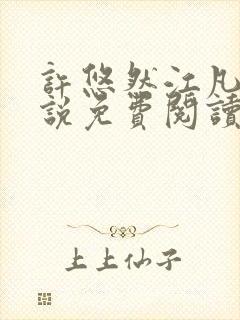 許悠然江凡
說免費閱讀
上上仙子